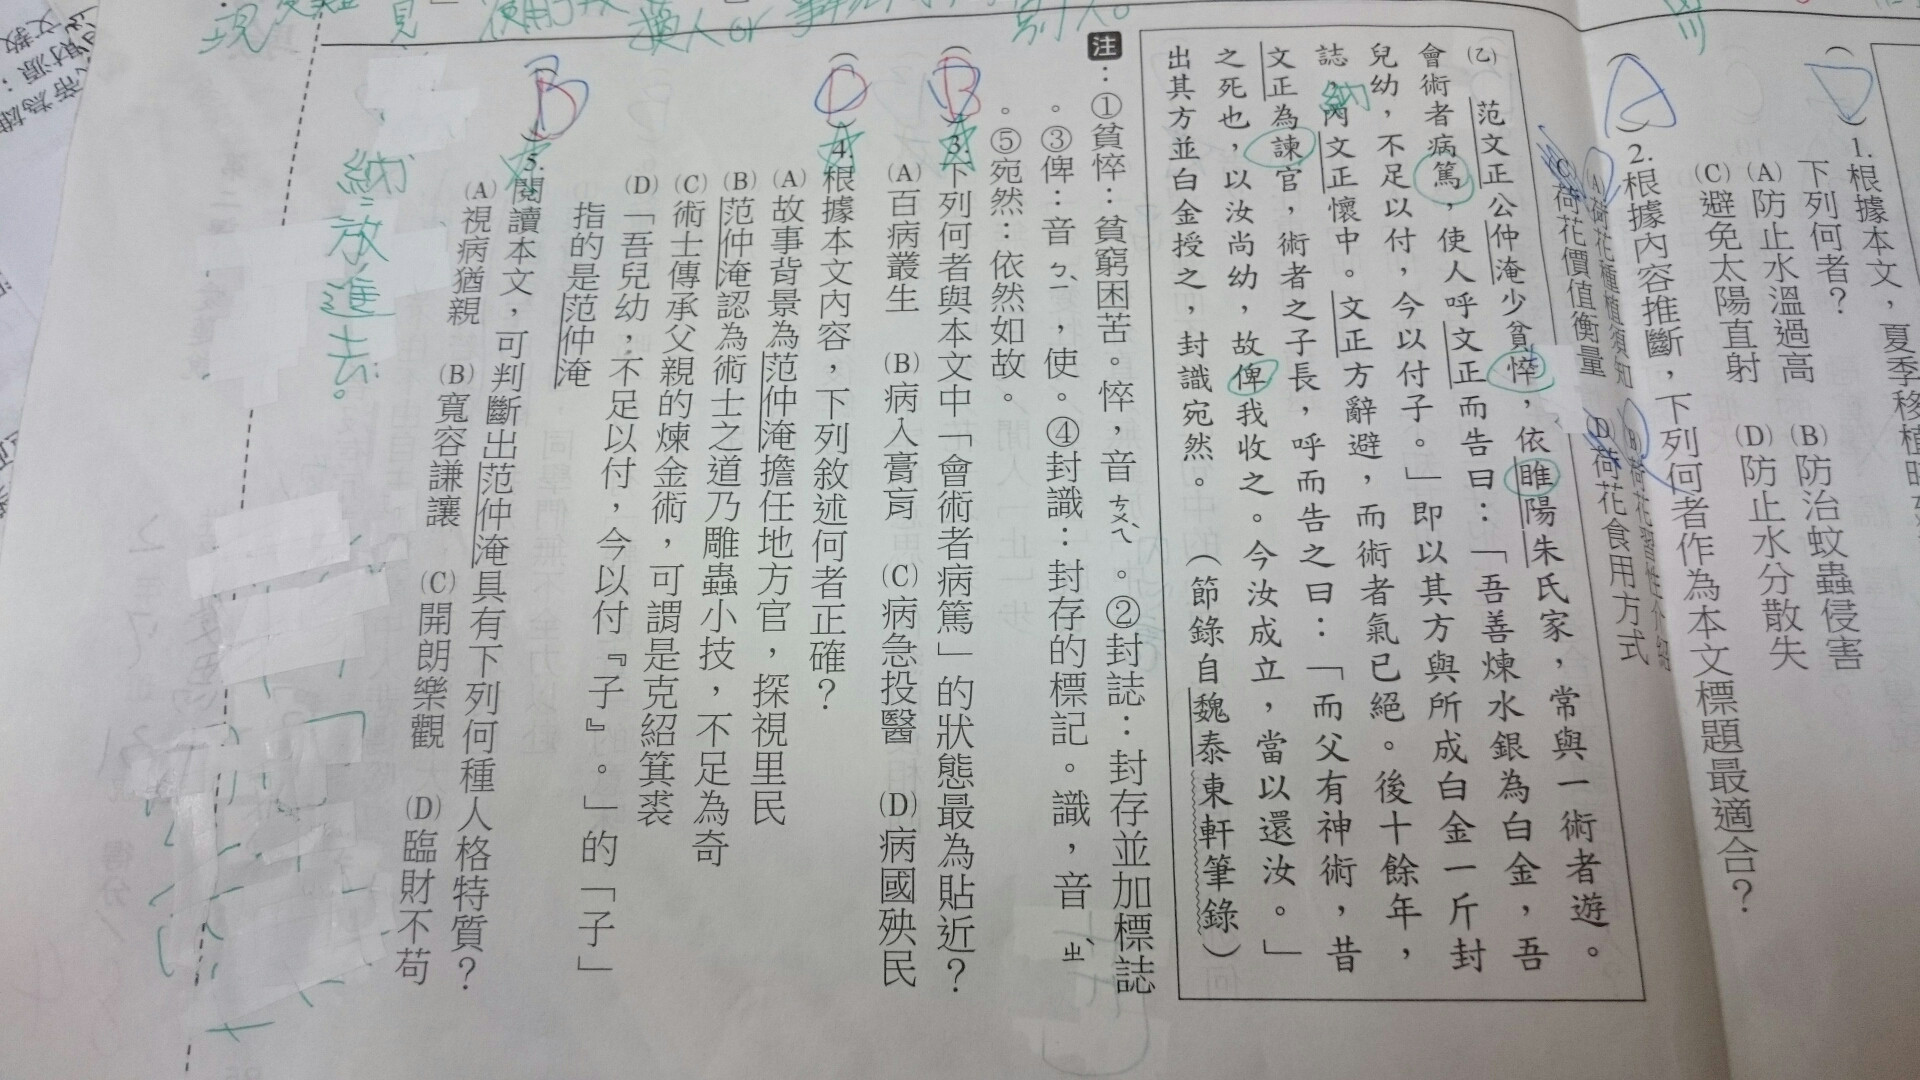 1.根據本文，夏季移植時
下列何者？
(A)防止水溫過高 (B)防治蚊蟲侵害
(C)避免太陽直射 (D)防止水分散失
(A)2.根據內容推斷，下列何者作為本文標題最適合？
(A)荷花種植須知
(C)荷花價值衡量 (D)荷花食用方式
(乙)范文正公仲淹少貧悴，依睢陽朱氏家，常與一術者遊。
會術者病篤，使人呼文正而告曰：「吾善煉水銀為白金，吾
兒幼，不足以付，今以付子。」即以其方與所成白金一斤封
誌，內文正懷中。文正方辭避，而術者氣已絕。後十餘年，
納
文正為諫官，術者之子長，呼而告之曰：「而父有神術，昔
之死也，以汝尚幼，故俾我收之。今汝成立，當以還汝。」
出其方並白金授之，封識宛然。（節錄自魏泰東軒筆錄）
注：①貧悴：貧窮困苦。悴，音ㄘㄨㄟˋ。②封誌：封存並加標誌
。③俾：音ㄅㄧˋ，使。④封識：封存的標記。識，音ㄓˋ
。⑤宛然：依然如故。
(B)3.下列何者與本文中「會術者病篤」的狀態最為貼近？
(A)百病叢生 (B)病入膏肓 (C)病急投醫 (D)病國殃民
(D)4.根據本文內容，下列敘述何者正確？
(A)故事背景為范仲淹擔任地方官，探視里民
(B)范仲淹認為術士之道乃雕蟲小技，不足為奇
(C)術士傳承父親的煉金術，可謂是克紹箕裘
(D)「吾兒幼，不足以付，今以付『子』。」的「子」
指的是范仲淹
(B)5.閱讀本文，可判斷出范仲淹具有下列何種人格特質？
(A)視病猶親 (B)寬容謙讓 (C)開朗樂觀 (D)臨財不苟
納：放進去。